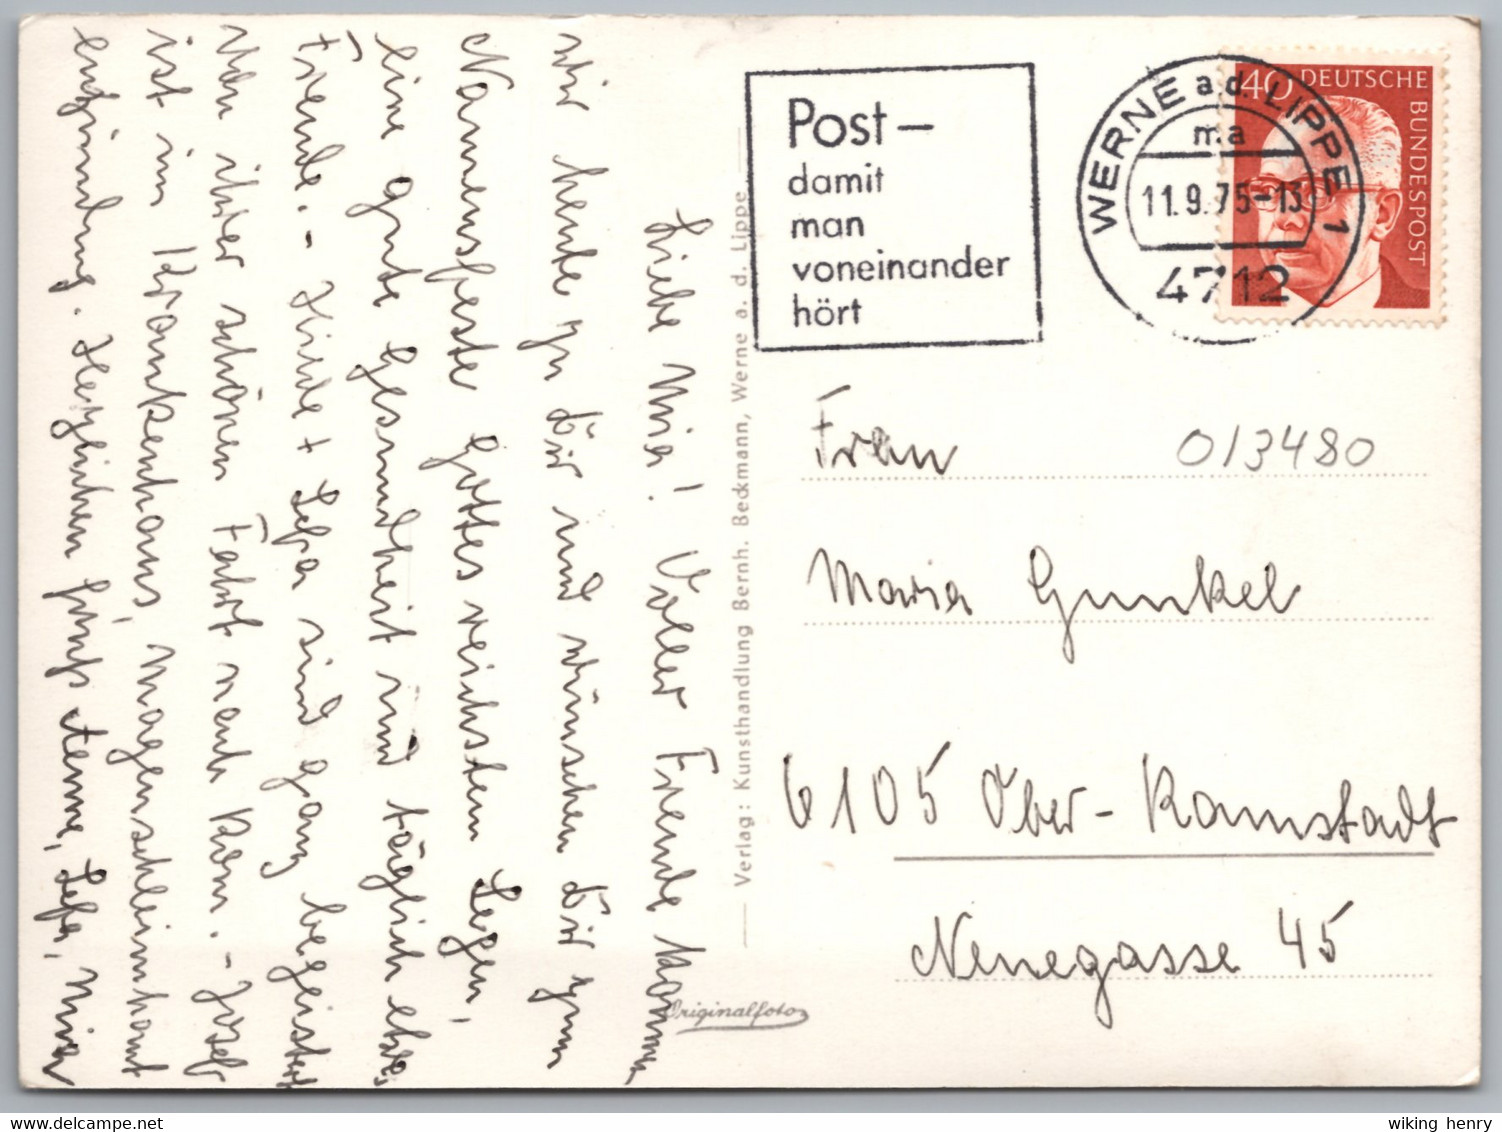 Liebe Mia! Voller Freude kommen
wir heute zu Dir und wünschen Dir zum
Namensfeste Gottes reichsten Segen,
eine gute Gesundheit und täglich etwas
Freude. - Hilde + Sefa sind ganz begeistert
von ihrer schönen Fahrt nach Rom. - Josef
ist im Krankenhaus, Magenschleimhaut
entzündung. Herzlichen Gruß Änne, Sefa,
Verlag: Kunsthandlung Bernh. Beckmann, Werne a. d. Lippe
Originalfoto
Post –
damit
man
voneinander
hört
WERNE a.d. LIPPE 1
ma
11.9.75-13
4712
40 DEUTSCHE
BUNDESPOST
Frau
013480
Maria Gunkel
6105 Ober-Ramstadt
Neuegasse 45
wiking henry